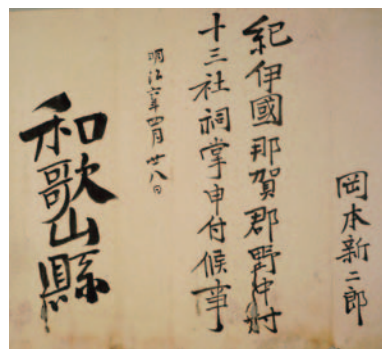 岡本新二郎
紀伊國那賀郡野中村
十三社祠掌申付候事
明治六年四月廿八日
和歌山縣